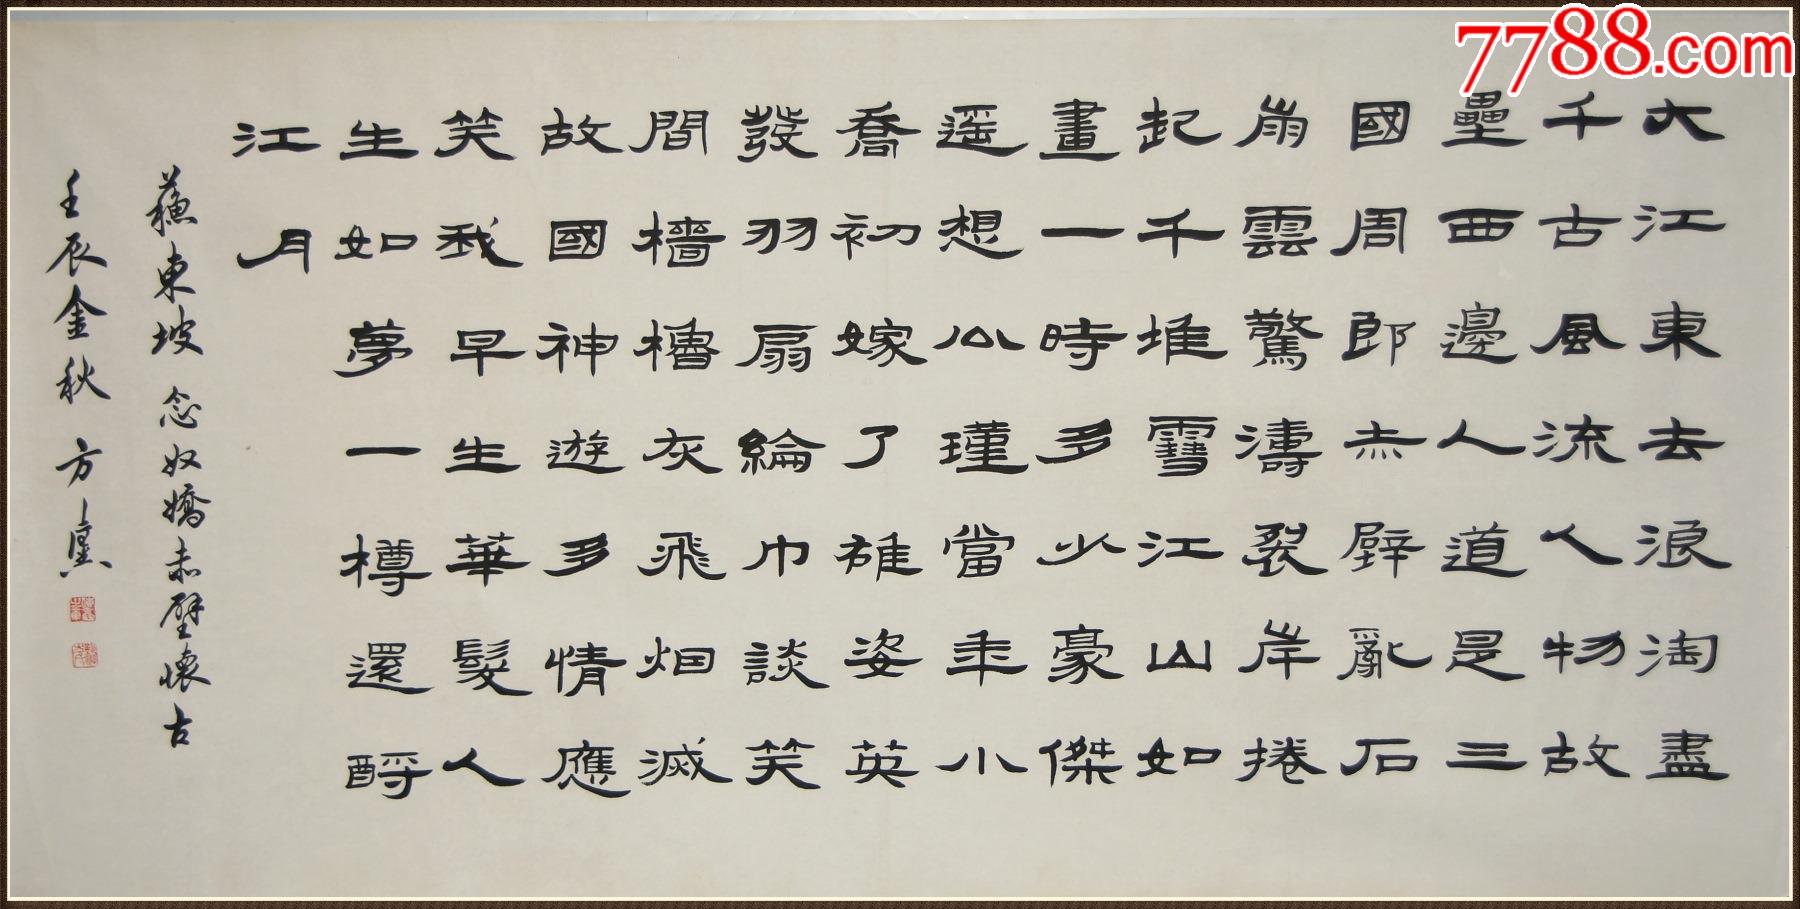 大江東去浪淘盡
千古風流人物故
壘西邊人道是三
國周郎赤壁亂石
崩雲驚濤裂岸捲
起千堆雪江山如
畫一時多少豪傑
遥想公瑾當年小
喬初嫁了雄姿英
發羽扇綸巾談笑
間檣櫓灰飛烟滅
故國神遊多情應
笑我早生華髮人
生如夢一樽還酹
江月
蘇東坡 念奴嬌赤壁懷古
壬辰金秋 方
7788.com